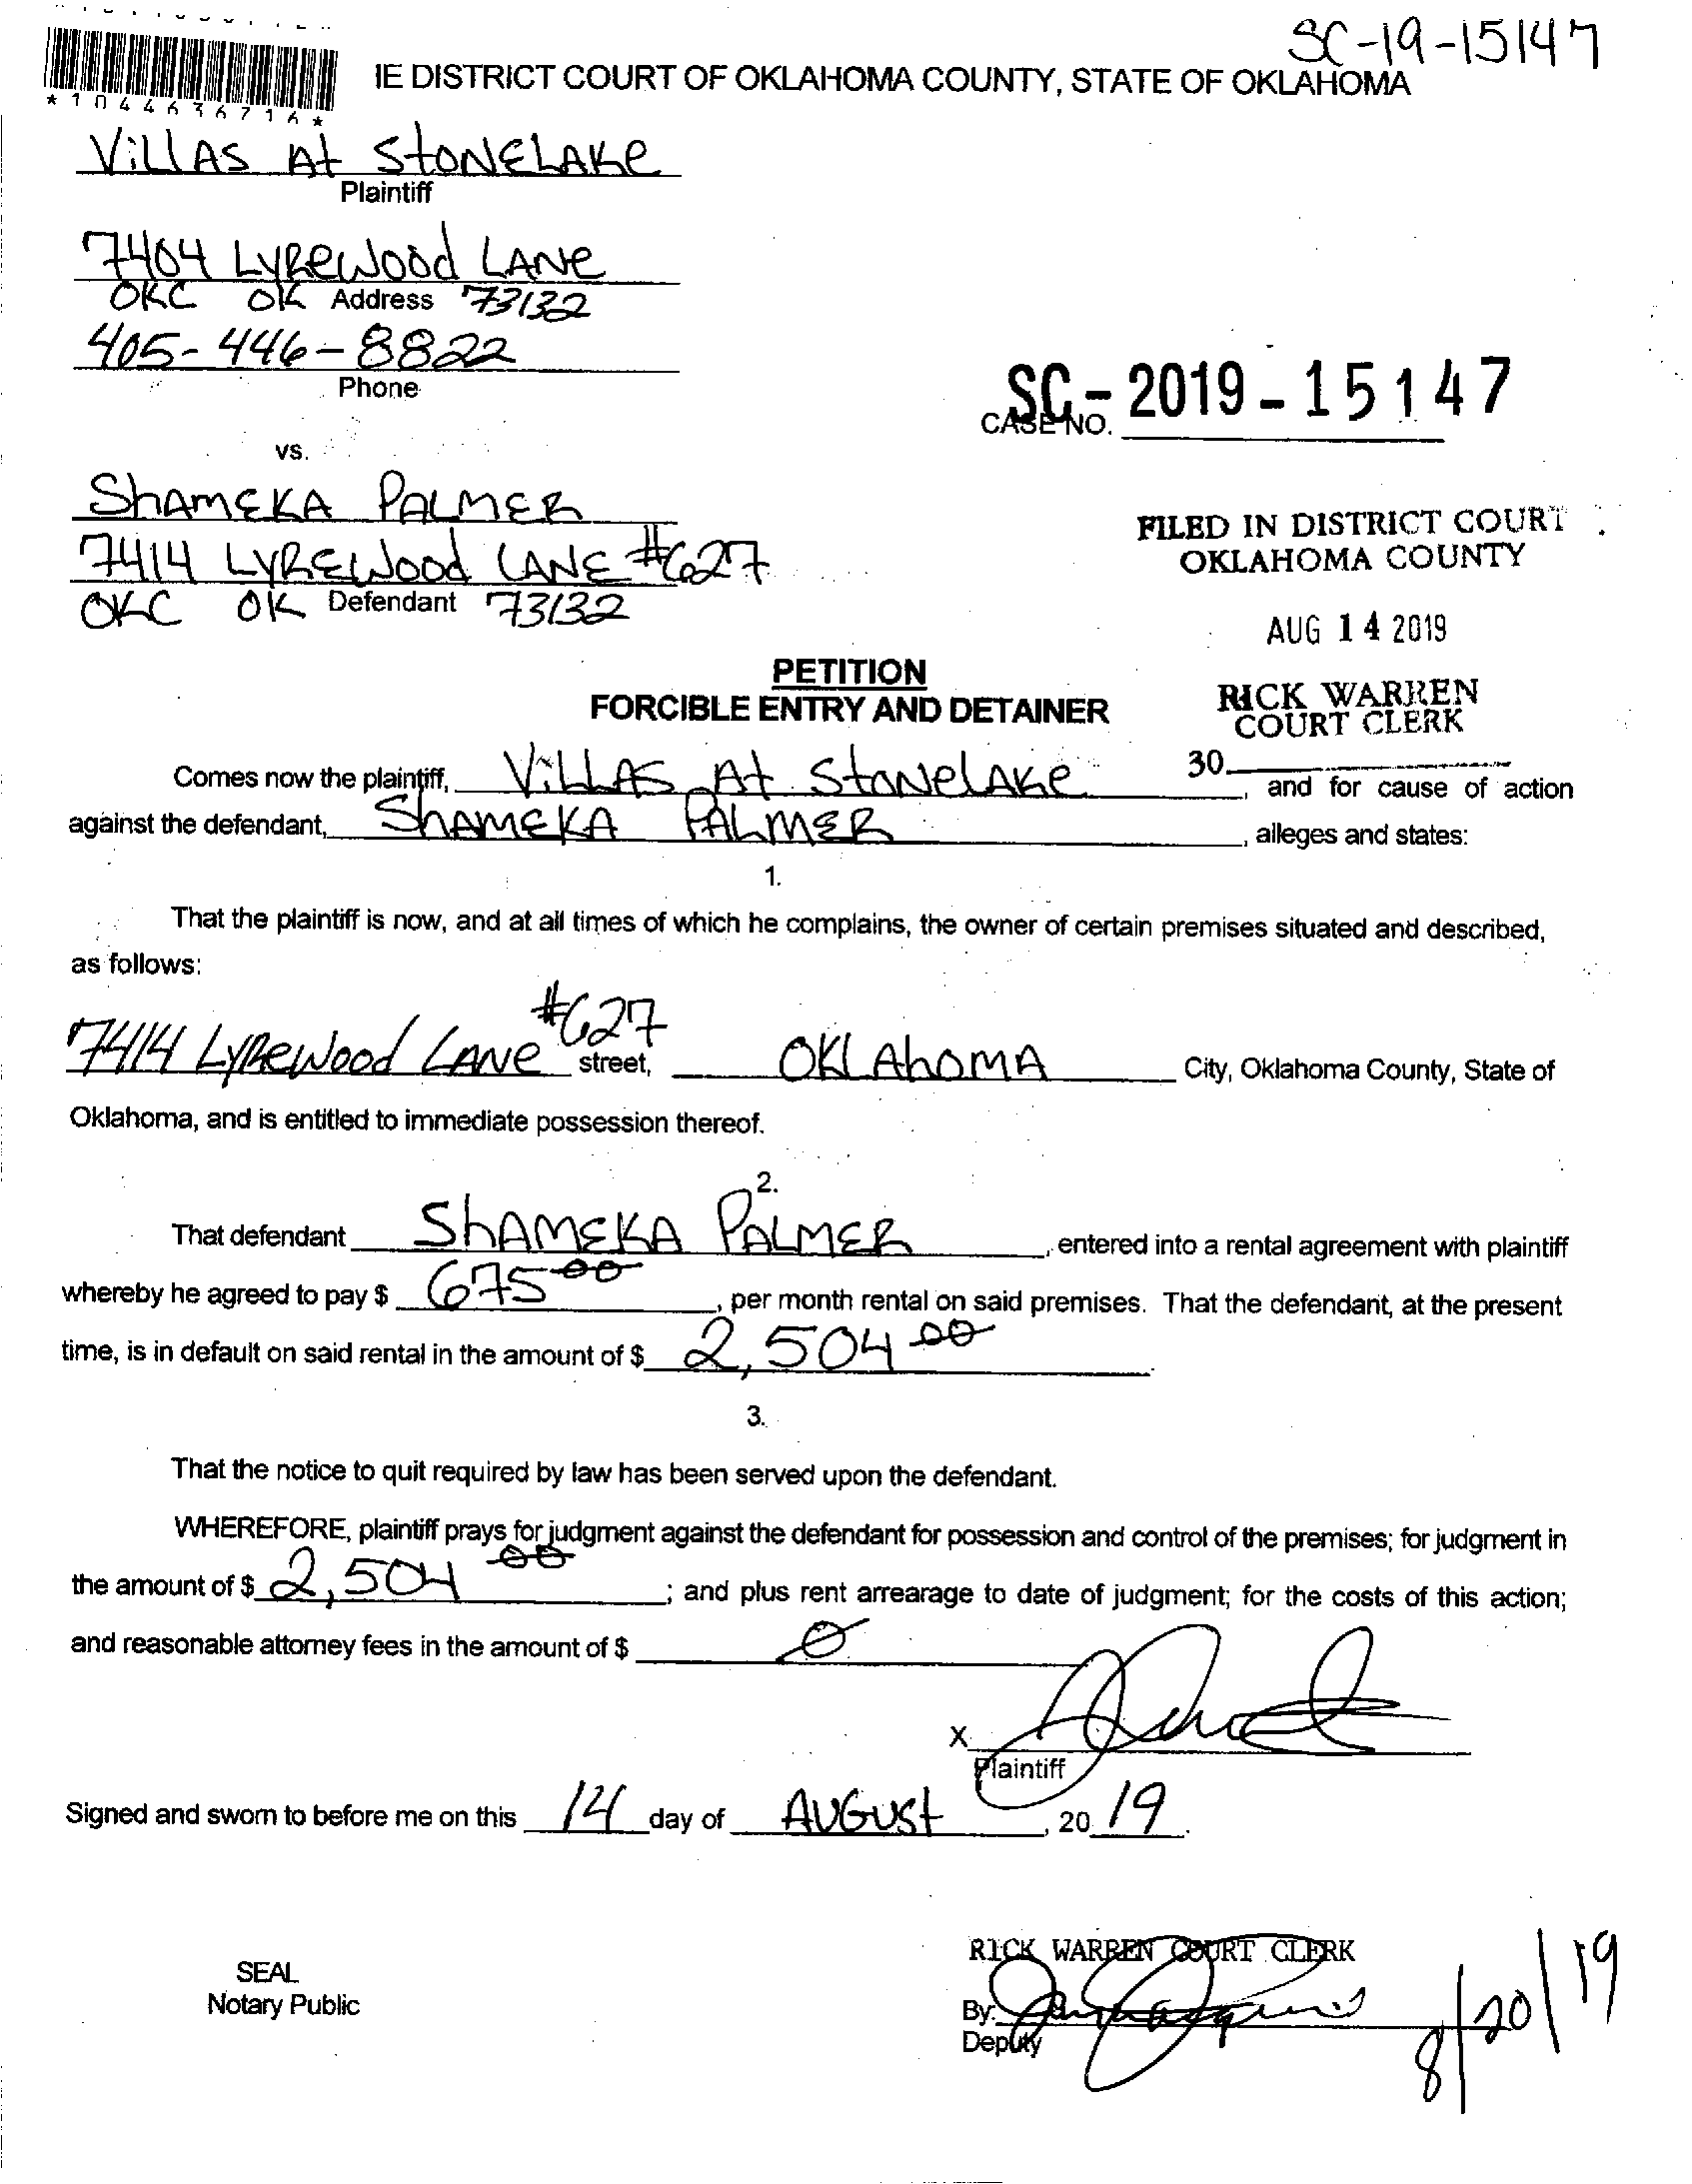 SC-19-15147
*1044636716*
IE DISTRICT COURT OF OKLAHOMA COUNTY, STATE OF OKLAHOMA
VILLAS At StONELAKE
Plaintiff
7404 LYREWOOD LANE
OKC OK Address 73132
405-446-8822
Phone
SC-2019-15147
CASE NO.
vs.
ShAMEKA PALMER
7414 LYREWOOD LANE #627
OKC OK Defendant 73132
FILED IN DISTRICT COURT
OKLAHOMA COUNTY
AUG 14 2019
PETITION
FORCIBLE ENTRY AND DETAINER
RICK WARREN
COURT CLERK
30
Comes now the plaintiff, VILLAS At StONELAKE, and for cause of action
against the defendant, ShAMEKA PALMER, alleges and states:
1.
That the plaintiff is now, and at all times of which he complains, the owner of certain premises situated and described,
as follows:
7414 LYREWOOD LANE #627 street, OKLAhOMA City, Oklahoma County, State of
Oklahoma, and is entitled to immediate possession thereof.
2.
That defendant ShAMEKA PALMER, entered into a rental agreement with plaintiff
whereby he agreed to pay $ 675 00, per month rental on said premises. That the defendant, at the present
time, is in default on said rental in the amount of $ 2,504 00.
3.
That the notice to quit required by law has been served upon the defendant.
WHEREFORE, plaintiff prays for judgment against the defendant for possession and control of the premises; for judgment in
the amount of $ 2,504 00; and plus rent arrearage to date of judgment; for the costs of this action;
and reasonable attorney fees in the amount of $ 0
X
Plaintiff
Signed and sworn to before me on this 14 day of AUGUSt, 20 19.
RICK WARREN COURT CLERK
SEAL
Notary Public
By:
Deputy
8/20/19